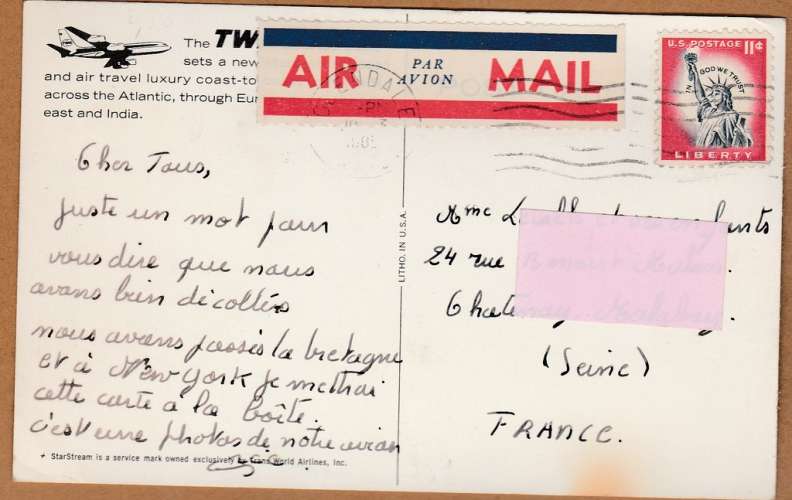 The TWA
sets a new
and air travel luxury coast-to
across the Atlantic, through Eur
east and India.
AIR
PAR
AVION
MAIL
U.S. POSTAGE 11¢
IN GOD WE TRUST
LIBERTY
LITHO. IN U.S.A.
Cher Tous,
juste un mot pour
vous dire que nous
avons bien décollés
nous avons passés la bretagne
et à New York je mettrai
cette carte à la boîte.
c'est une photos de notre avion
* StarStream is a service mark owned exclusively by Trans World Airlines, Inc.
Mme
24 rue
(Seine)
FRANCE.